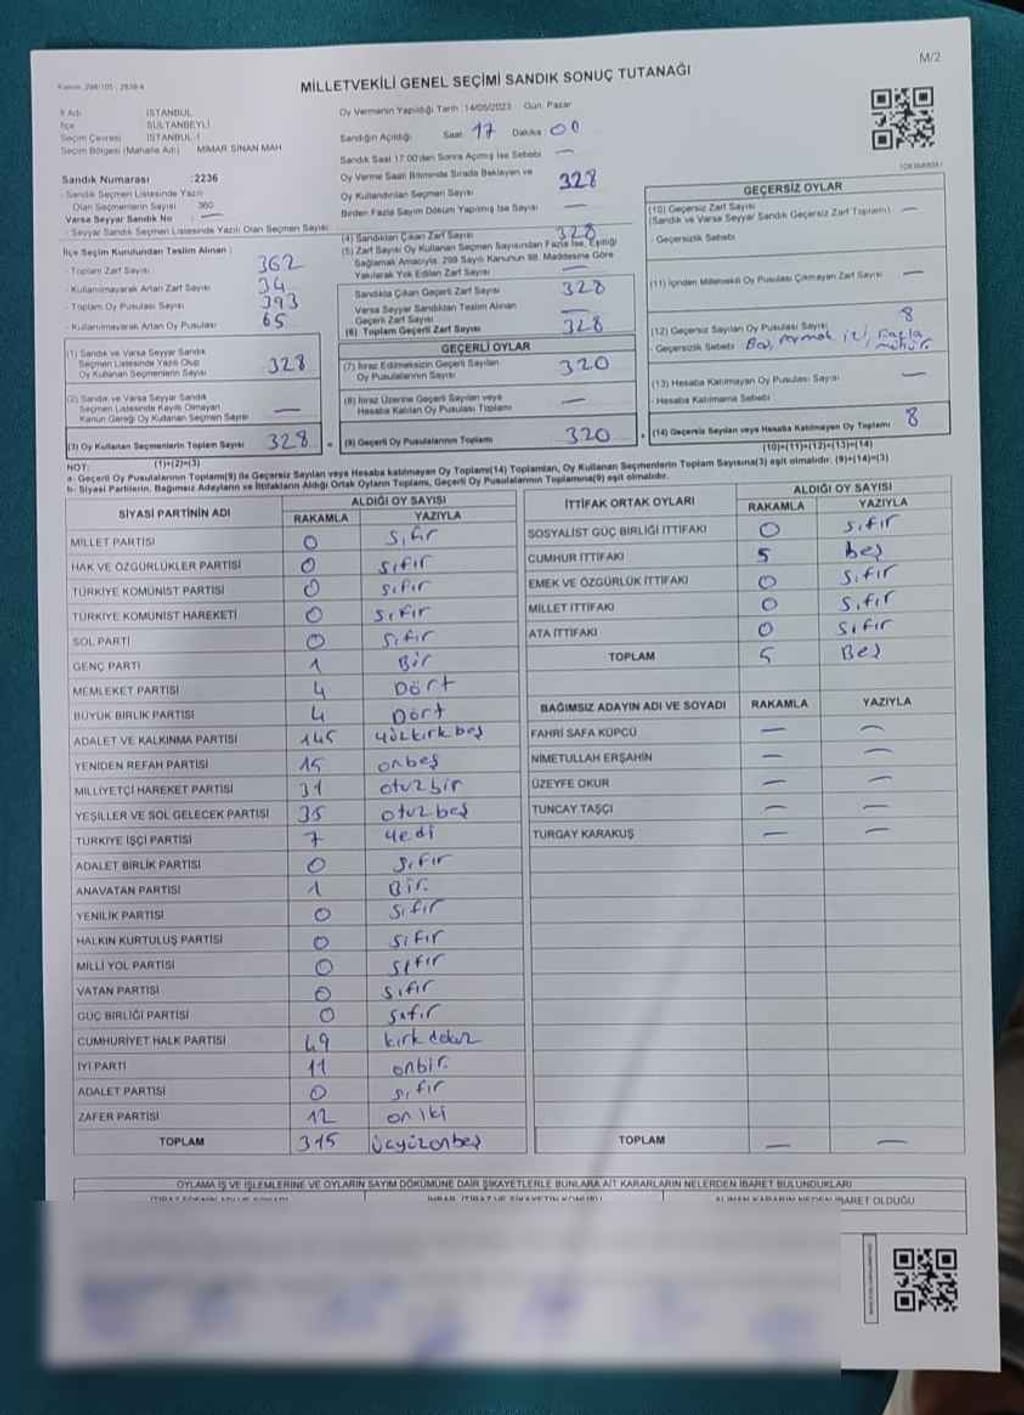 M/2
MİLLETVEKİLİ GENEL SEÇİMİ SANDIK SONUÇ TUTANAĞI
İl Adı İSTANBUL
İlçe SULTANBEYLİ
Seçim Çevresi İSTANBUL-1
Seçim Bölgesi (Mahalle Adı) MİMAR SİNAN MAH
Sandık Numarası :2236
- Sandık Seçmen Listesinde Yazılı
Olan Seçmenlerin Sayısı 360
Varsa Seyyar Sandık No : —
- Seyyar Sandık Seçmen Listesinde Yazılı Olan Seçmen Sayısı
İlçe Seçim Kurulundan Teslim Alınan :
- Toplam Zarf Sayısı 362
- Kullanılmayarak Artan Zarf Sayısı 34
- Toplam Oy Pusulası Sayısı 393
- Kullanılmayarak Artan Oy Pusulası 65
(1) Sandık ve Varsa Seyyar Sandık
Seçmen Listesinde Yazılı Olup
Oy Kullanan Seçmenlerin Sayısı 328
(2) Sandık ve Varsa Seyyar Sandık
Seçmen Listesinde Kayıtlı Olmayan
Kanun Gereği Oy Kullanan Seçmen Sayısı —
(3) Oy Kullanan Seçmenlerin Toplam Sayısı 328
(1)+(2)=(3)
Oy Vermenin Yapıldığı Tarih :14/05/2023 Gün: Pazar
Sandığın Açıldığı Saat 17 Dakika 00
Sandık Saat 17:00'den Sonra Açılmış İse Sebebi —
Oy Verme Saati Bitiminde Sırada Bekleyen ve
Oy Kullandırılan Seçmen Sayısı 328
Birden Fazla Sayım Döküm Yapılmış İse Sayısı —
(4) Sandıktan Çıkan Zarf Sayısı 328
(5) Zarf Sayısı Oy Kullanan Seçmen Sayısından Fazla İse, Eşitliği
Sağlamak Amacıyla, 298 Sayılı Kanunun 98. Maddesine Göre
Yakılarak Yok Edilen Zarf Sayısı —
Sandıkta Çıkan Geçerli Zarf Sayısı 328
Varsa Seyyar Sandıktan Teslim Alınan
Geçerli Zarf Sayısı —
(6) Toplam Geçerli Zarf Sayısı 328
GEÇERLİ OYLAR
(7) İtiraz Edilmeksizin Geçerli Sayılan
Oy Pusulalarının Sayısı 320
(8) İtiraz Üzerine Geçerli Sayılan veya
Hesaba Katılan Oy Pusulası Toplamı —
(9) Geçerli Oy Pusulalarının Toplamı 320
GEÇERSİZ OYLAR
(10) Geçersiz Zarf Sayısı
(Sandık ve Varsa Seyyar Sandık Geçersiz Zarf Toplamı) —
- Geçersizlik Sebebi
(11) İçinden Milletvekili Oy Pusulası Çıkmayan Zarf Sayısı —
(12) Geçersiz Sayılan Oy Pusulası Sayısı 8
- Geçersizlik Sebebi
(13) Hesaba Katılmayan Oy Pusulası Sayısı —
- Hesaba Katılmama Sebebi
(14) Geçersiz Sayılan veya Hesaba Katılmayan Oy Toplamı 8
(10)+(11)+(12)+(13)=(14)
NOT:
a- Geçerli Oy Pusulalarının Toplamı(9) ile Geçersiz Sayılan veya Hesaba katılmayan Oy Toplamı(14) Toplamları, Oy Kullanan Seçmenlerin Toplam Sayısına(3) eşit olmalıdır. (9)+(14)=(3)
b- Siyasi Partilerin, Bağımsız Adayların ve İttifakların Aldığı Ortak Oyların Toplamı, Geçerli Oy Pusulalarının Toplamına(9) eşit olmalıdır.
SİYASİ PARTİNİN ADI ALDIĞI OY SAYISI
RAKAMLA YAZIYLA
MİLLET PARTİSİ 0 sıfır
HAK VE ÖZGÜRLÜKLER PARTİSİ 0 sıfır
TÜRKİYE KOMÜNİST PARTİSİ 0 sıfır
TÜRKİYE KOMÜNİST HAREKETİ 0 sıfır
SOL PARTİ 0 sıfır
GENÇ PARTİ 1 Bir
MEMLEKET PARTİSİ 4 Dört
BÜYÜK BİRLİK PARTİSİ 4 Dört
ADALET VE KALKINMA PARTİSİ 145 yüzkırkbeş
YENİDEN REFAH PARTİSİ 15 onbeş
MİLLİYETÇİ HAREKET PARTİSİ 31 otuzbir
YEŞİLLER VE SOL GELECEK PARTİSİ 35 otuzbeş
TÜRKİYE İŞÇİ PARTİSİ 7 yedi
ADALET BİRLİK PARTİSİ 0 sıfır
ANAVATAN PARTİSİ 1 Bir
YENİLİK PARTİSİ 0 sıfır
HALKIN KURTULUŞ PARTİSİ 0 sıfır
MİLLİ YOL PARTİSİ 0 sıfır
VATAN PARTİSİ 0 sıfır
GÜÇ BİRLİĞİ PARTİSİ 0 sıfır
CUMHURİYET HALK PARTİSİ 49 kırk dokuz
İYİ PARTİ 11 onbir
ADALET PARTİSİ 0 sıfır
ZAFER PARTİSİ 12 on iki
TOPLAM 315 üçyüzonbeş
İTTİFAK ORTAK OYLARI ALDIĞI OY SAYISI
RAKAMLA YAZIYLA
SOSYALİST GÜÇ BİRLİĞİ İTTİFAKI 0 sıfır
CUMHUR İTTİFAKI 5 beş
EMEK VE ÖZGÜRLÜK İTTİFAKI 0 sıfır
MİLLET İTTİFAKI 0 sıfır
ATA İTTİFAKI 0 sıfır
TOPLAM 5 Beş
BAĞIMSIZ ADAYIN ADI VE SOYADI RAKAMLA YAZIYLA
FAHRİ SAFA KÜPCÜ — —
NİMETULLAH ERŞAHİN — —
ÜZEYFE OKUR — —
TUNCAY TAŞÇI — —
TURGAY KARAKUŞ — —
TOPLAM — —
OYLAMA İŞ VE İŞLEMLERİNE VE OYLARIN SAYIM DÖKÜMÜNE DAİR ŞİKAYETLERLE BUNLARA AİT KARARLARIN NELERDEN İBARET BULUNDUKLARI